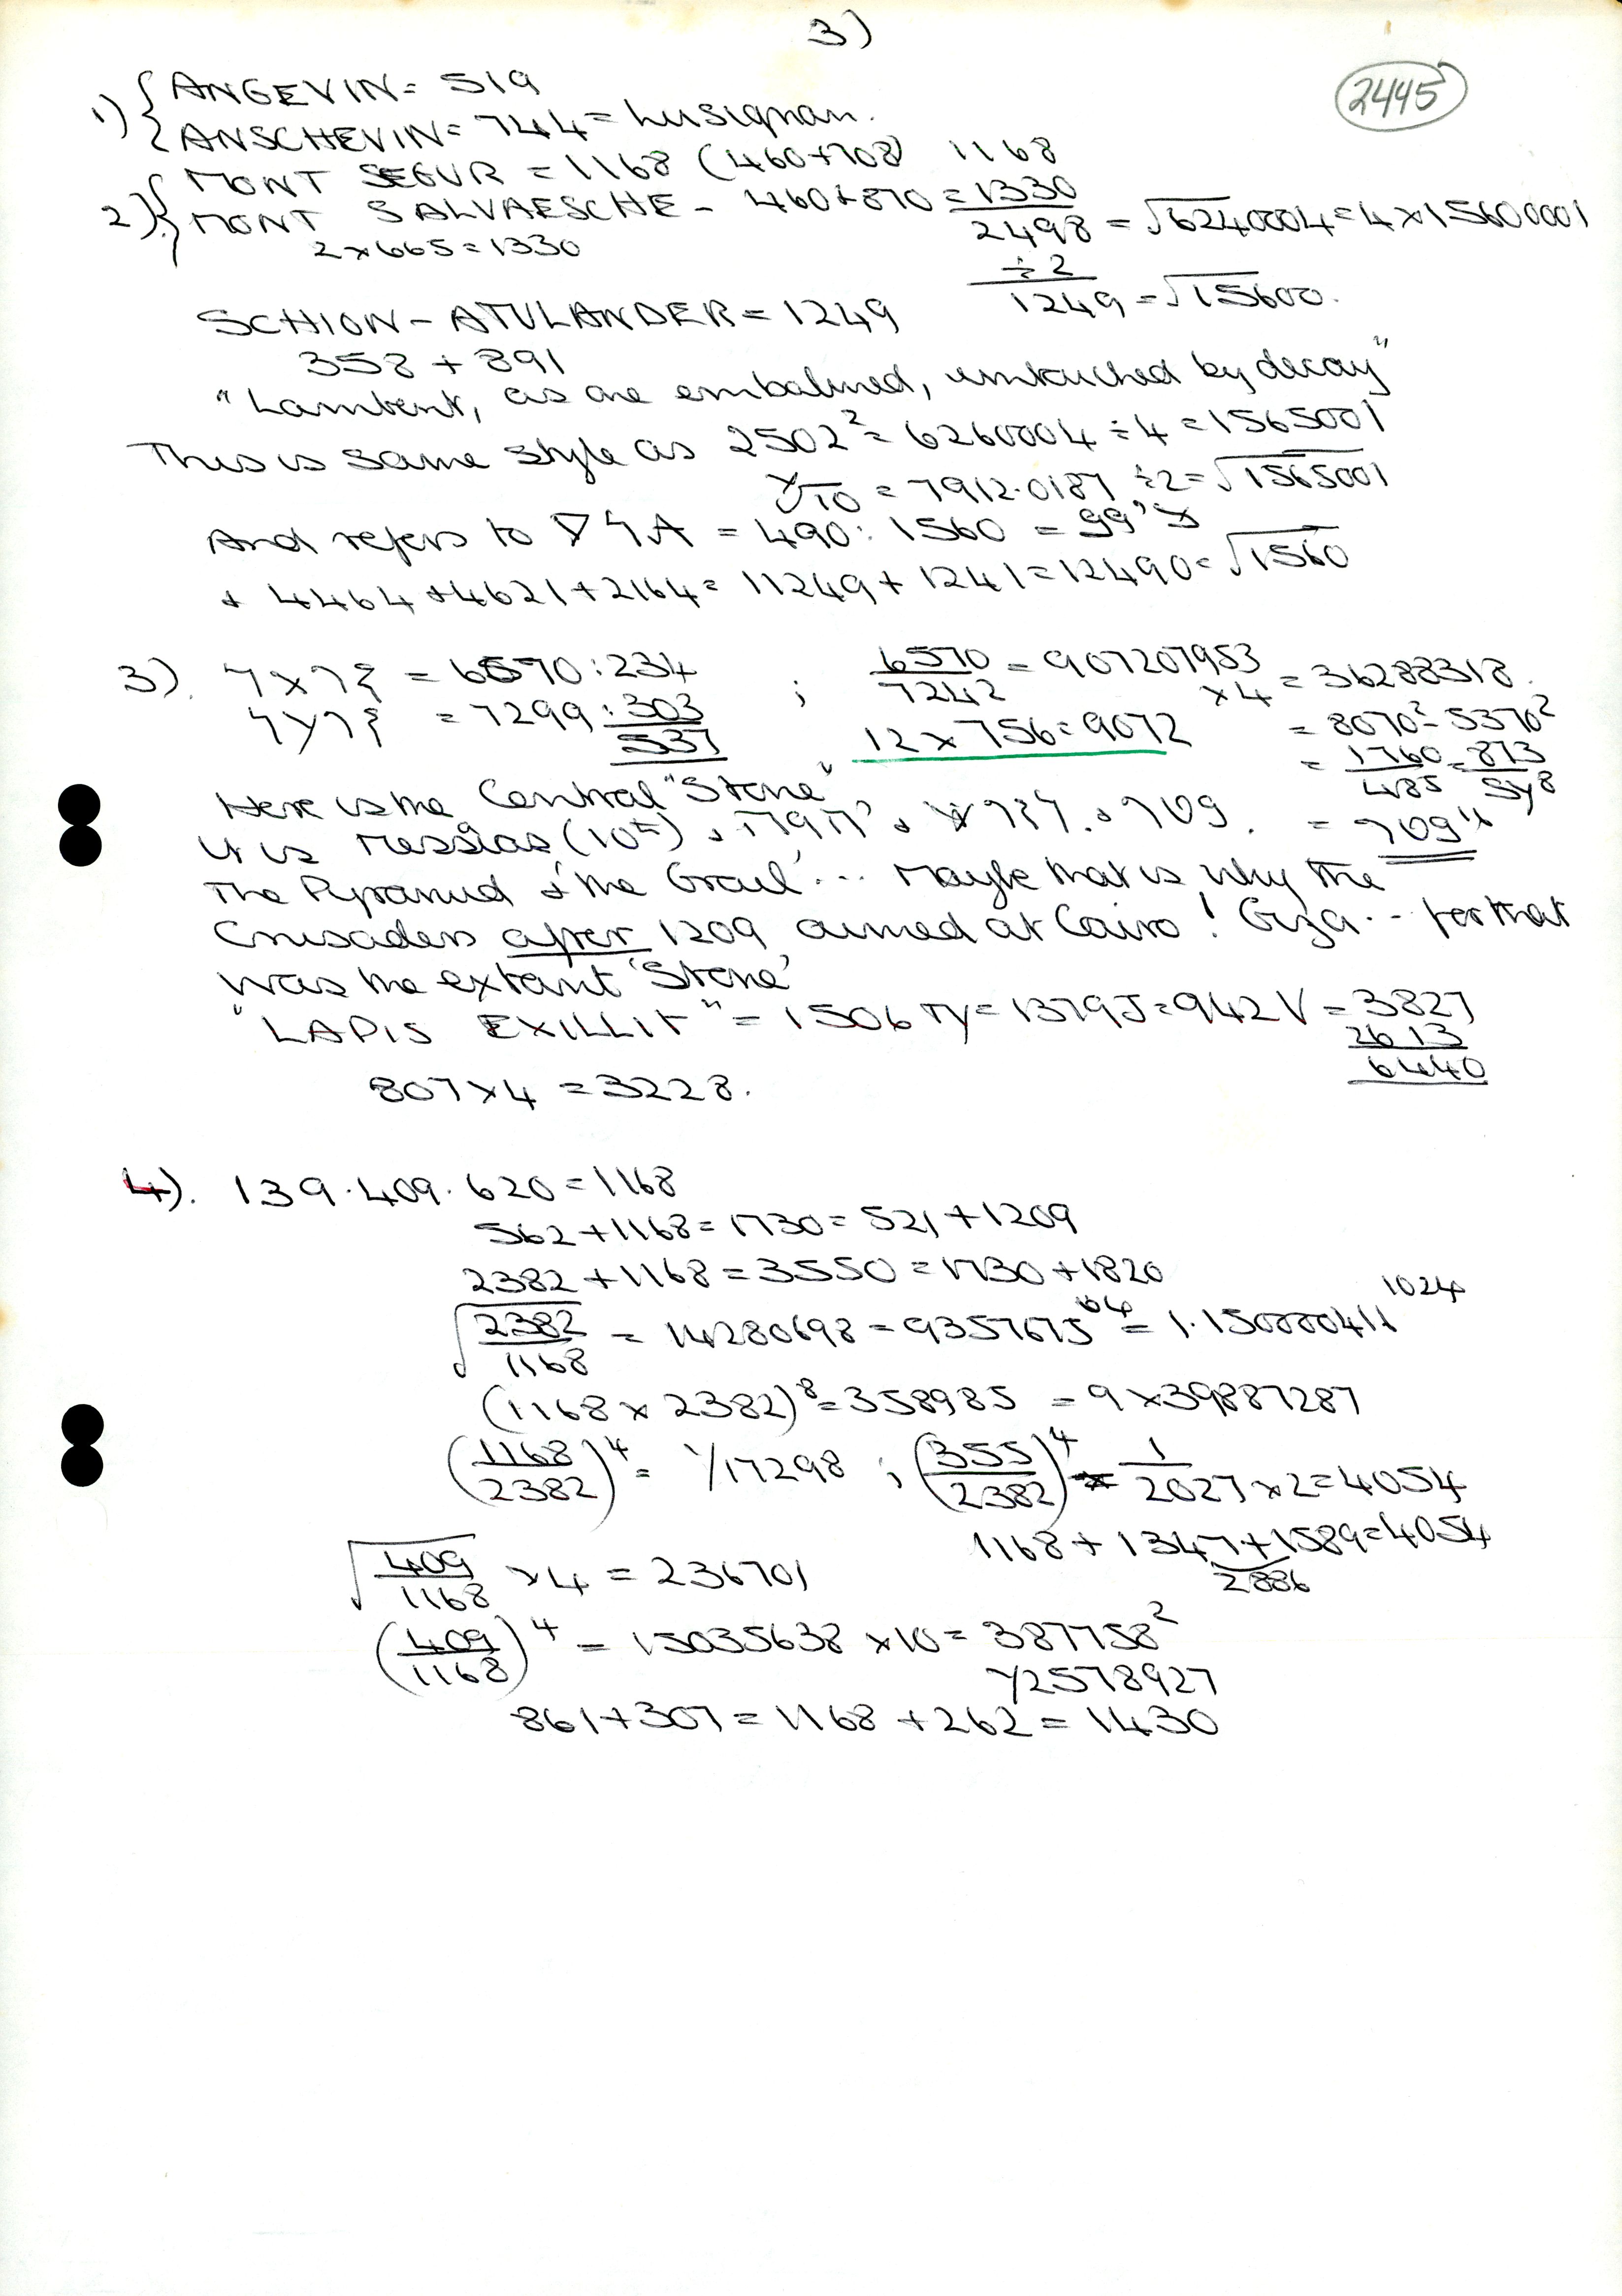 3)
2445
1) { ANGEVIN = 519
ANSCHEVIN = 744 = Lusignan.
2) { MONT SEGUR = 1168 (460+708) 1168
MONT SALVAESCHE - 460+870 = 1330
2×665=1330
2498 = √6240004 = 4×15600001
÷2
1249 = √15600.
SCHION-ATULANDER = 1249
358 + 891
"Lambent, as one embalmed, untouched by decay"
This is same style as 2502² = 6260004 ÷ 4 = 1565001
= 7912.0187 ÷2 = √1565001
And refers to = 490 : 1560 =
+ 4464 + 4621 + 2164 = 11249 + 1241 = 12490 = √1560
3). = 6570 : 234 ; 6570/7242 = 907207953 ×4 = 36288318.
= 7299 : 303 12×756=9072 = 8070² - 5370²
537 = 1760/485 = 873
Here is the Central "Stone"
It is Messias
The Pyramid & 'the Grail' ... Maybe that is why the
Crusaders after 1209 aimed at Cairo! Giza... for that
was the extant 'Stone'
"LAPIS EXILLIT" = 1506 = 1379 J = 942 V = 3827
2613
6440
807×4 = 3228.
4). 139.409.620 = 1168
562+1168 = 1730 = 521 + 1209
2382+1168 = 3550 = 1730 + 1820
√2382/1168 = 14280698 = 9357675⁶⁴ = 1.150000411 1024
(1168 × 2382)⁸ = 358985 = 9×39887287
(1168/2382)⁴ = 1/17298 ; (355/2382)⁴ = 1/2027 ×2 = 4054
1168 + 1347 + 1589 = 4054
2886
√409/1168 ×4 = 236701
(409/1168)⁴ = 15035638 ×10 = 387758²
2578927
861+307 = 1168 + 262 = 1430